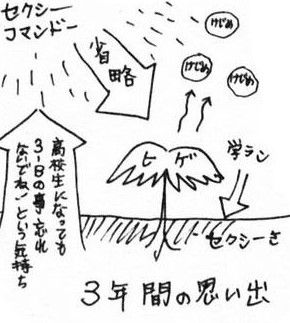 セクシー
コマンドー
省略
けじめ
けじめ
けじめ
高校生になっても
3-Bの事忘れ
ないでね♡という気持ち
ヒゲ
学ラン
セクシーさ
3年間の思い出